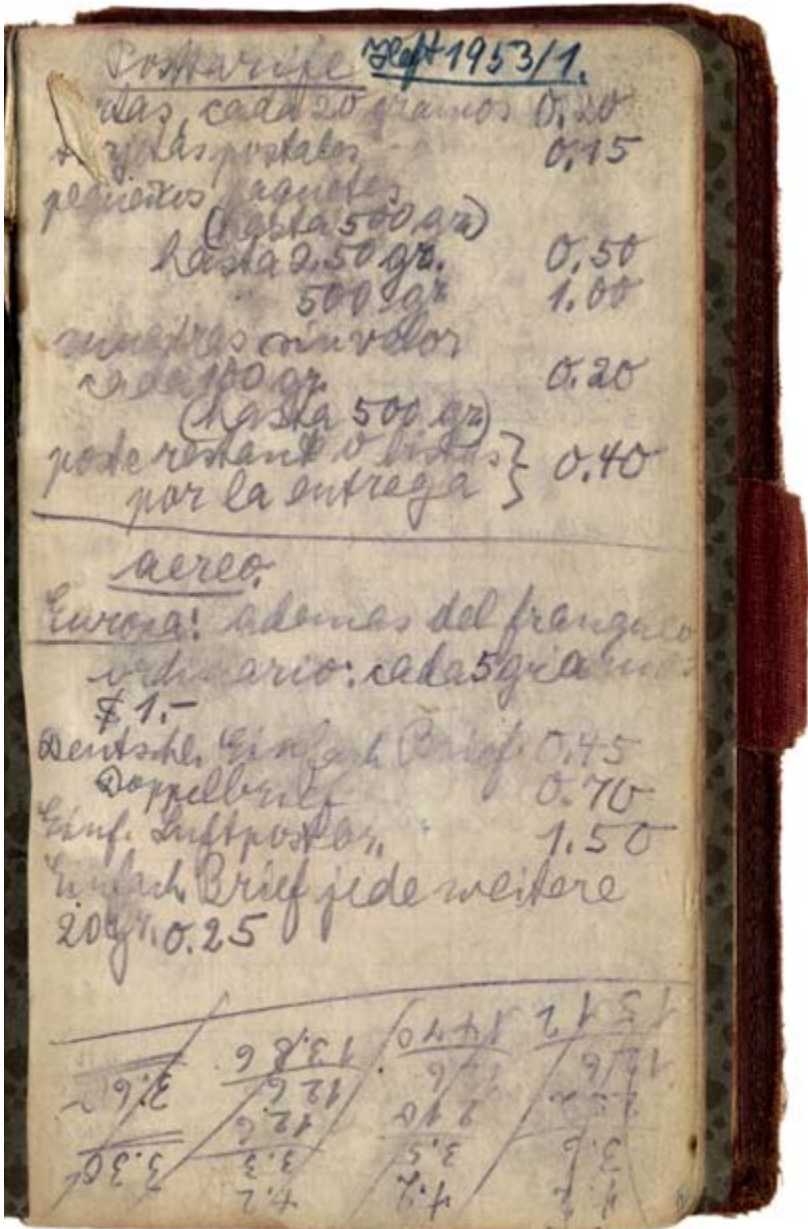 Posttarife Heft 1953/1.
rtas, cada 20 gramos 0.20
tarjetas postales 0,15
pequeños paquetes
(hasta 500 gr)
hasta 250 gr. 0.50
500 gr 1.00
muestras sin valor
cada 100 gr. 0.20
(hasta 500 gr)
poste restant o listas } 0.40
por la entrega
aereo.
Europa: ademas del franqueo
ordinario: cada 5 gramos
$ 1.-
Deutschl. Einfach Brief 0.45
Doppelbrief 0.70
Einf. Luftpostbr. " 1.50
Einfach. Brief jede weitere
20 gr. 0.25
4.2 4.2
3.30 3.3 3.5 3.6
12.6 210
3.6 126 126
13.86 1470 1512